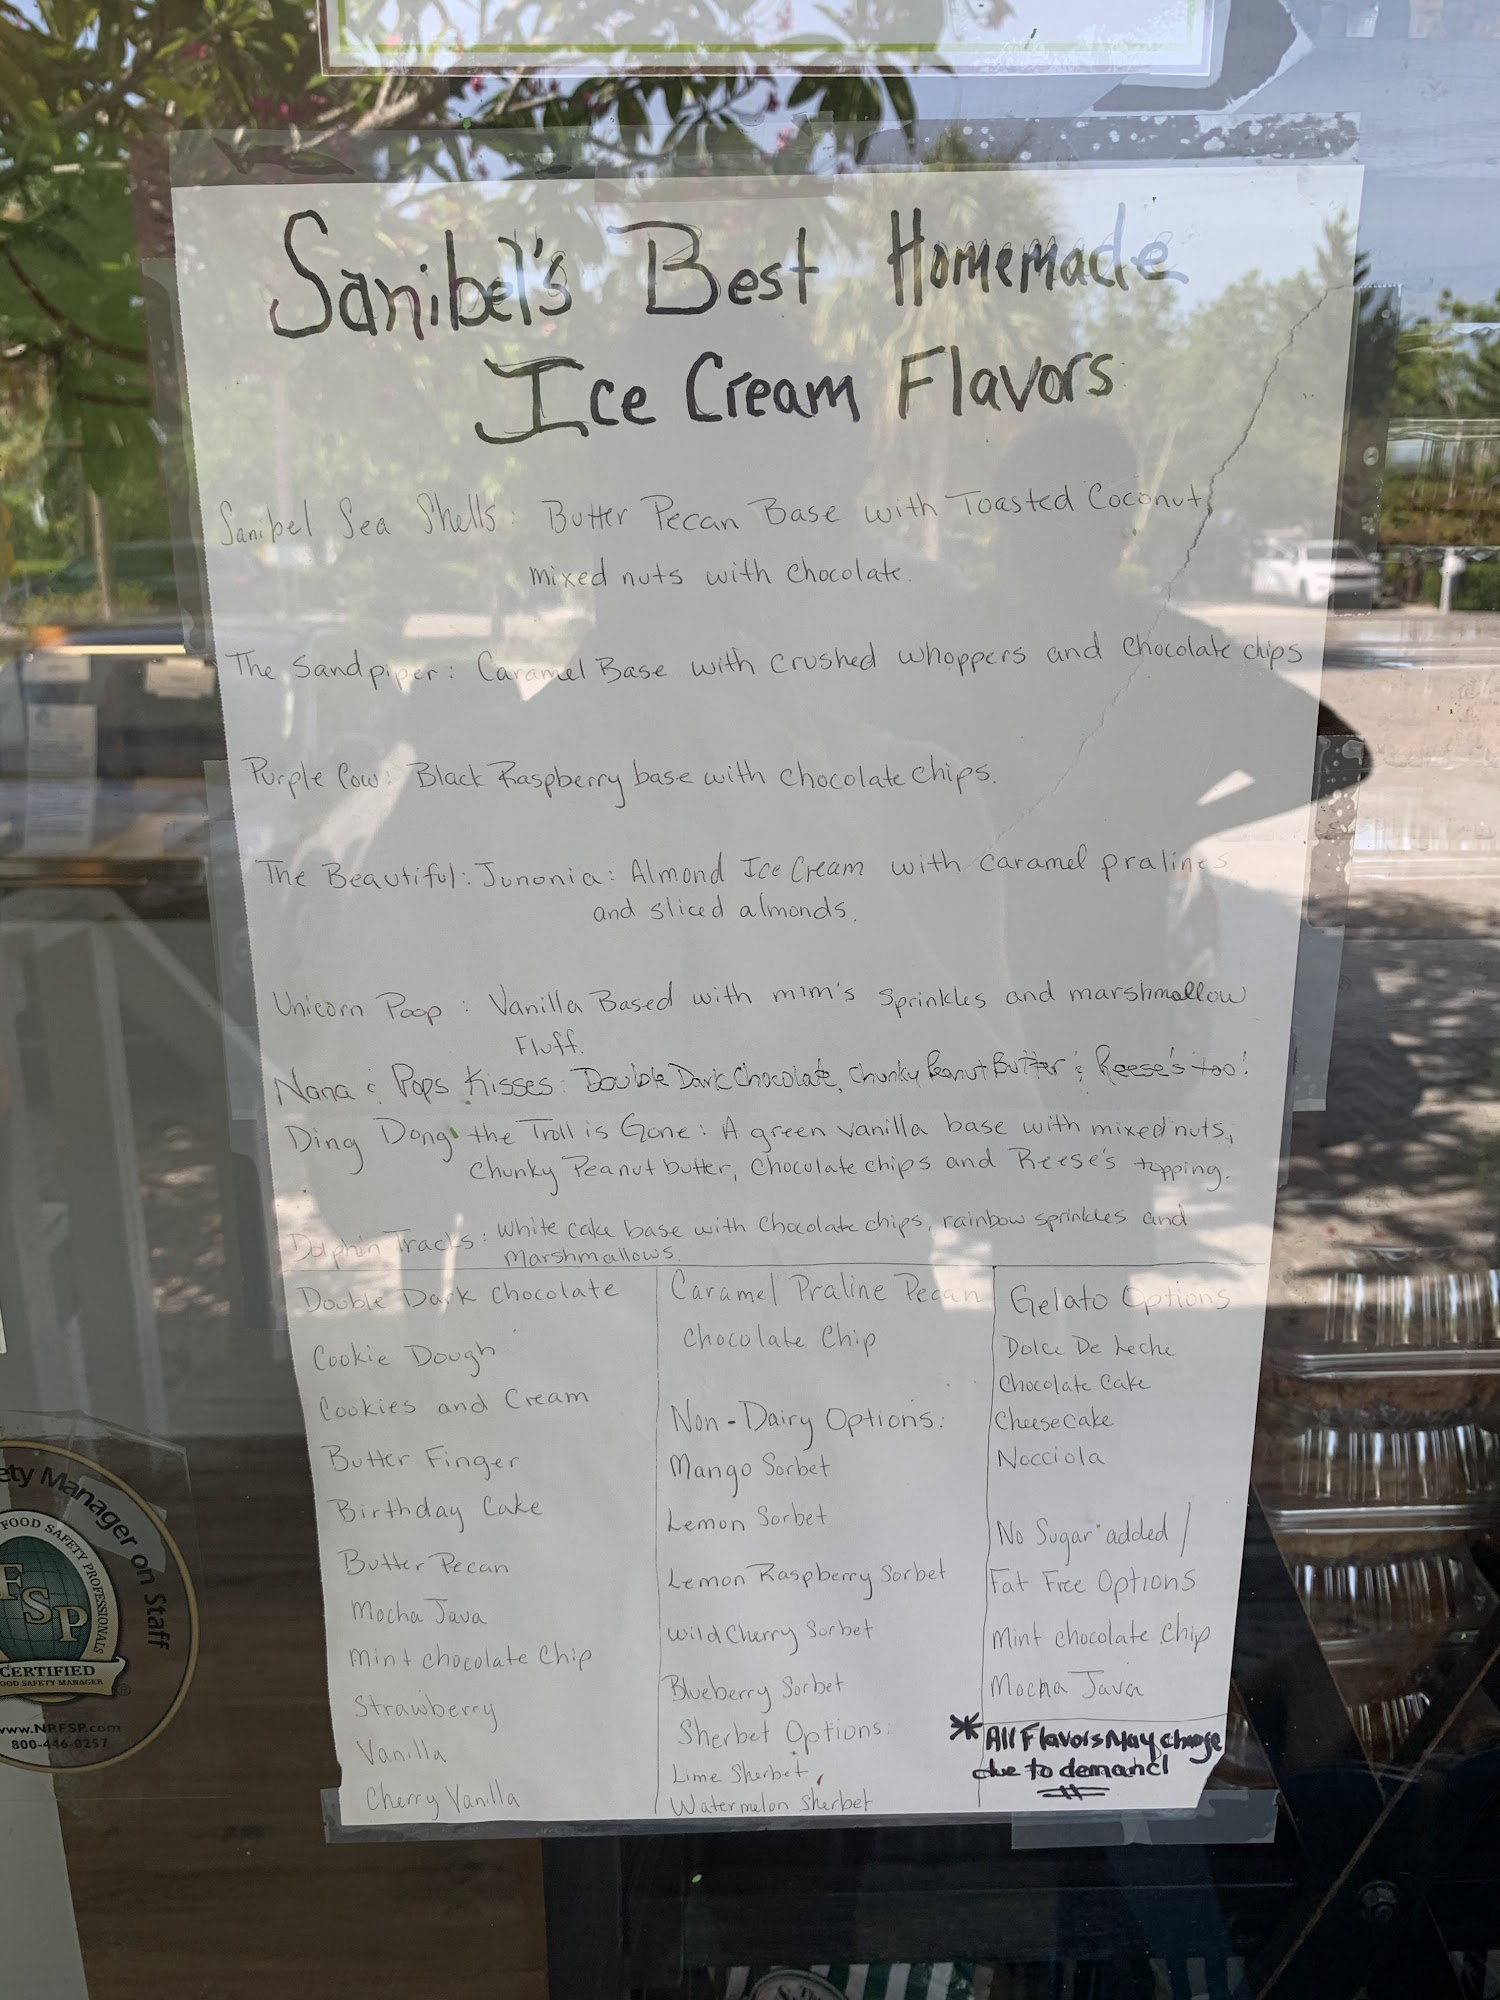 Sanibel's Best Homemade
Ice Cream Flavors
Sanibel Sea Shells: Butter Pecan Base with Toasted Coconut,
mixed nuts with chocolate.
The Sandpiper: Caramel Base with crushed whoppers and chocolate chips
Purple Cow: Black Raspberry base with chocolate chips.
The Beautiful: Junonia: Almond Ice Cream with caramel pralines
and sliced almonds.
Unicorn Poop: Vanilla Based with m?m's sprinkles and marshmallow
Fluff.
Nana & Pops Kisses: Double Dark Chocolate, Chunky Peanut Butter & Reese's too!
Ding Dong the Troll is Gone: A green vanilla base with mixed nuts,
chunky Peanut butter, chocolate chips and Reese's topping.
Dolphin Tracks: white cake base with chocolate chips, rainbow sprinkles and
marshmallows.
Double Dark Chocolate
Cookie Dough
Cookies and Cream
Butter Finger
Birthday Cake
Butter Pecan
Mocha Java
Mint chocolate Chip
Strawberry
Vanilla
Cherry Vanilla
Caramel Praline Pecan
Chocolate Chip
Non-Dairy Options:
Mango Sorbet
Lemon Sorbet
Lemon Raspberry Sorbet
Wild Cherry Sorbet
Blueberry Sorbet
Sherbet Options:
Lime Sherbet
Watermelon Sherbet
Gelato Options
Dolce De Leche
Chocolate Cake
Cheesecake
Nocciola
No Sugar added /
Fat Free Options
Mint chocolate Chip
Mocha Java
* All Flavors May change
due to demand
ety Manager on Staff
FOOD SAFETY PROFESSIONALS
FSP
CERTIFIED
OOD SAFETY MANAGER
www.NRFSP.com
800-446-0257